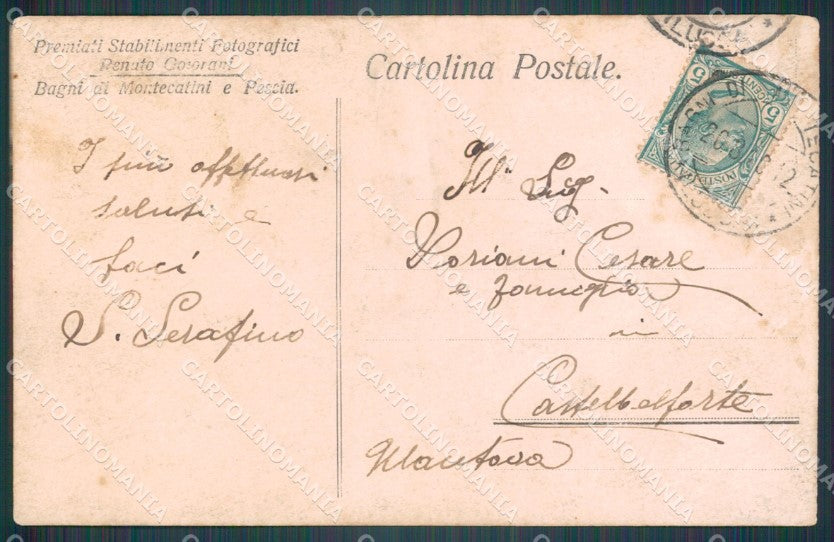 Premiati Stabilimenti Fotografici
Renato Goiorani
Bagni di Montecatini e Pescia.
Cartolina Postale.
I più affettuosi
saluti e
baci
S. Serafino
Ill. Sig.
Soriani Cesare
e famiglia
in
Castelbelforte
Mantova
5
5
CARTOLINOMANIA